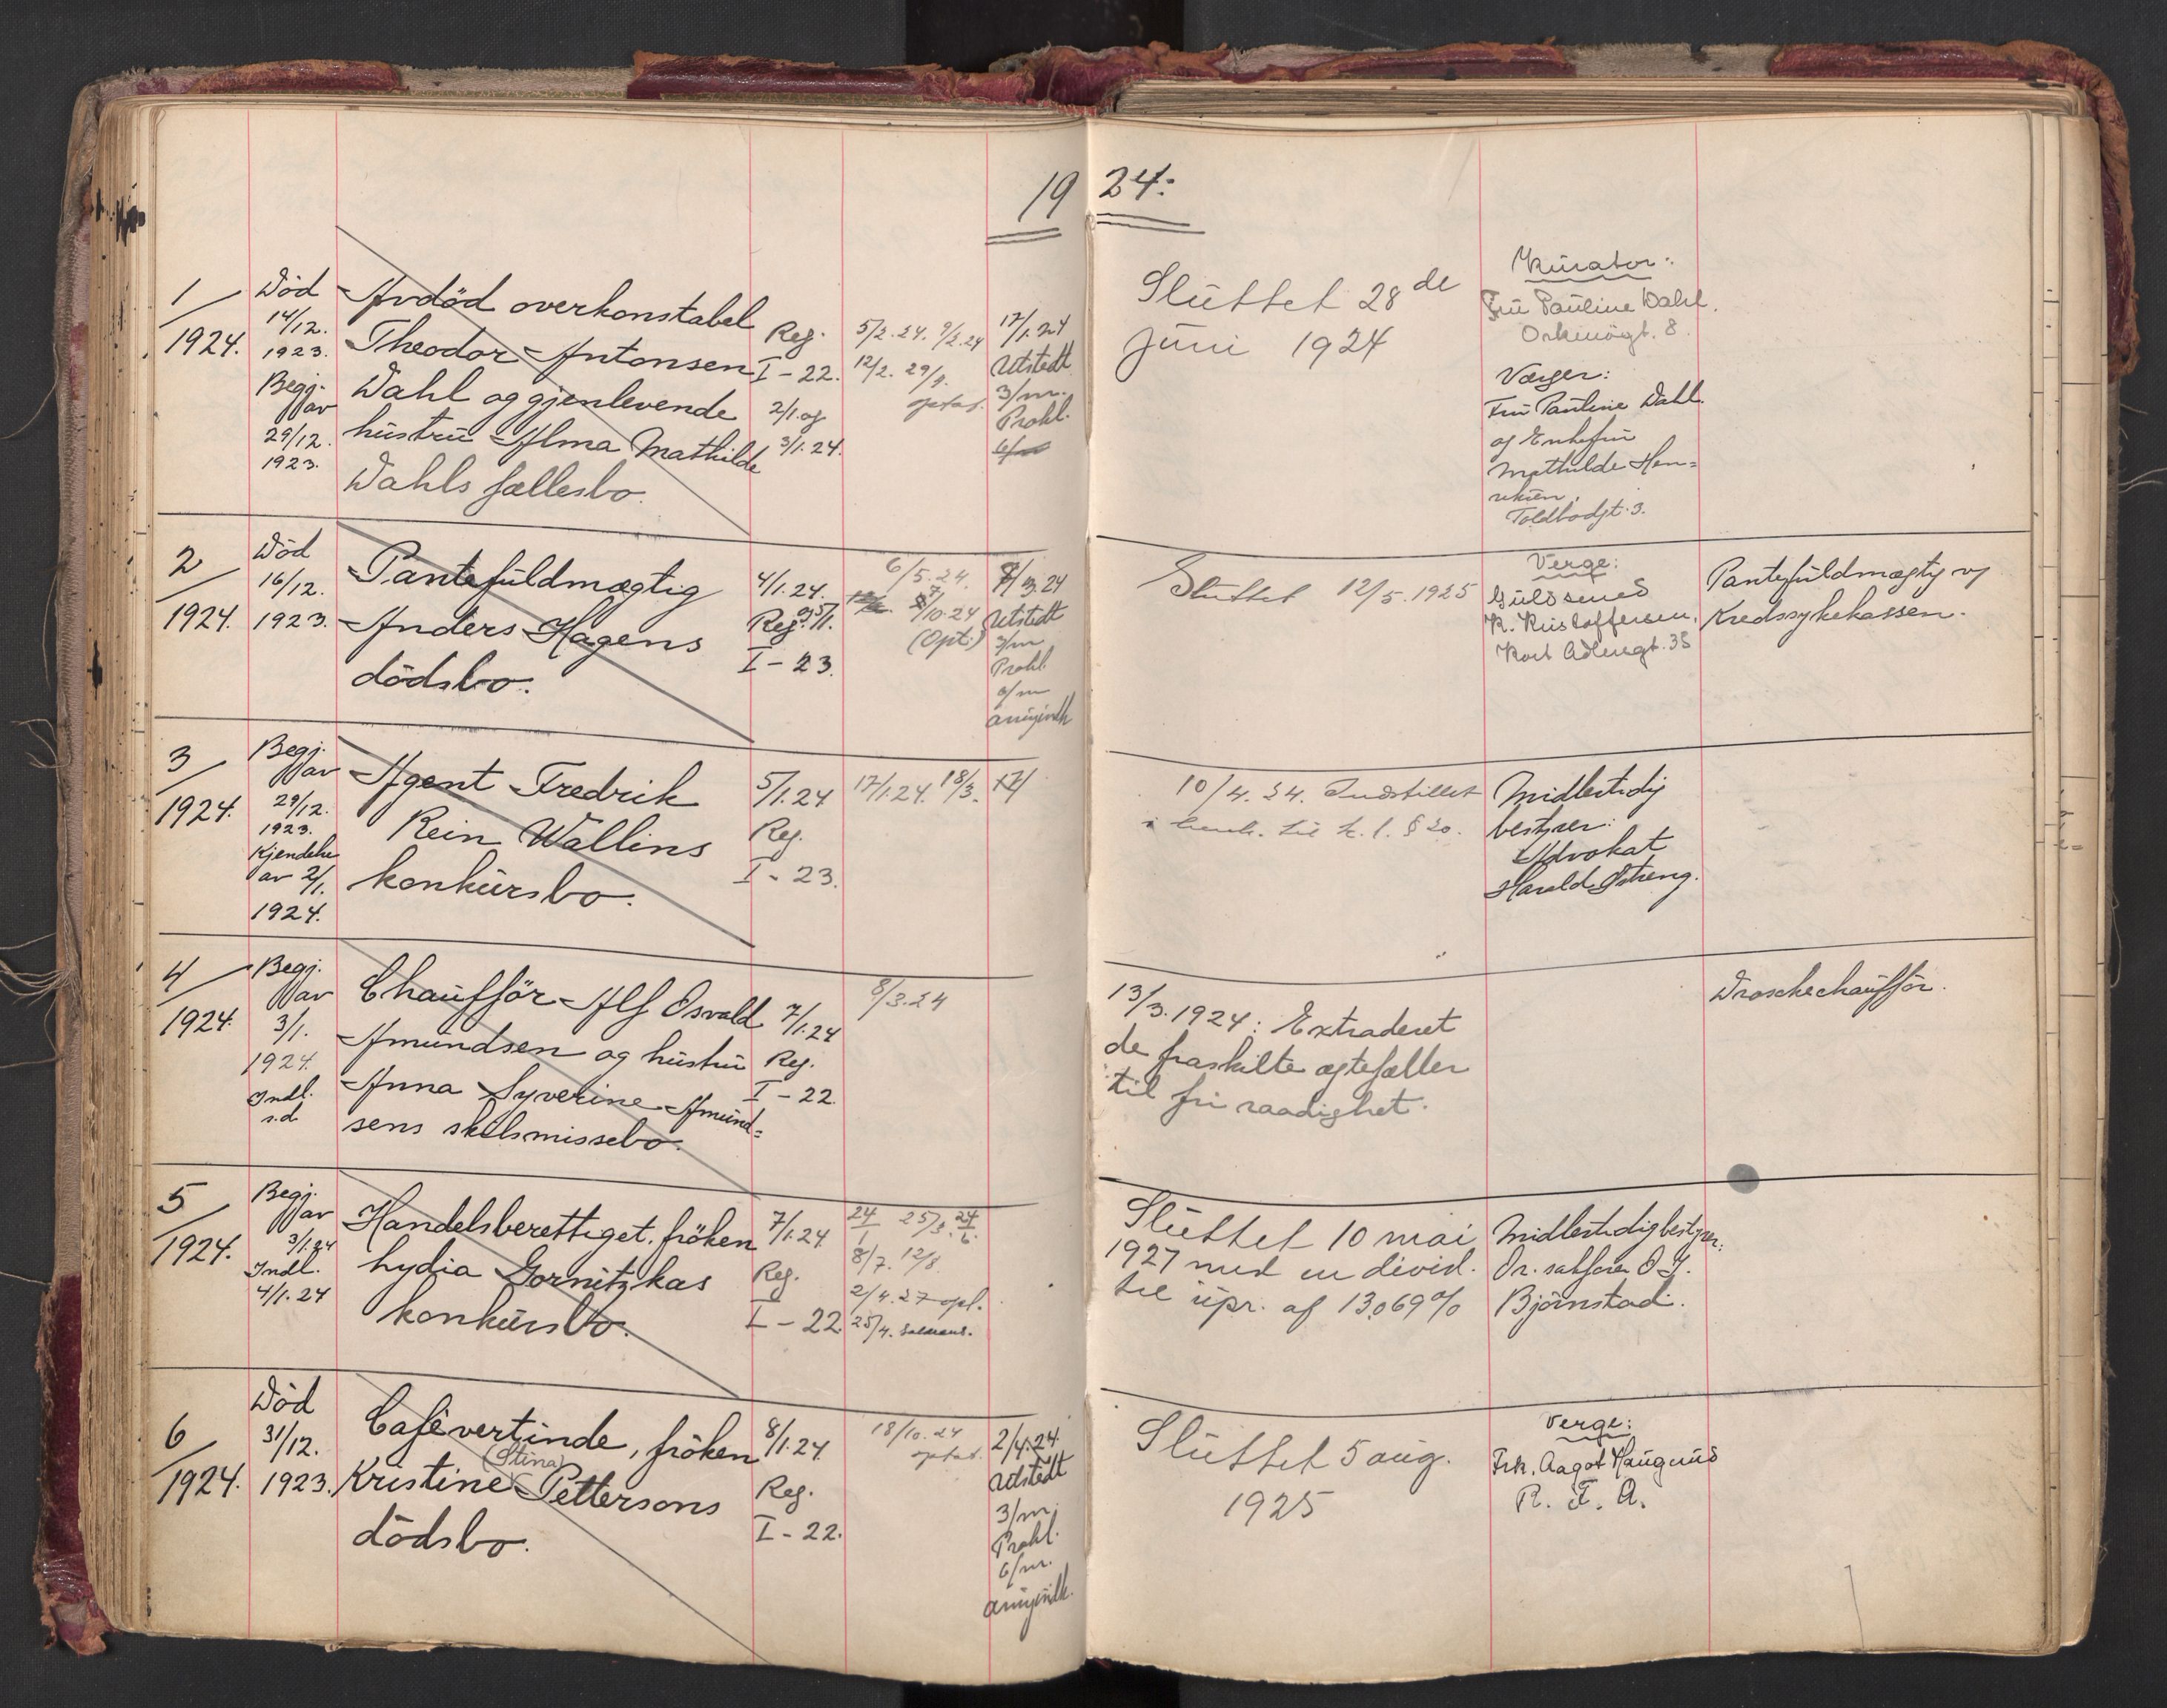 19 24:
1/1924.
Död
14/12.
1923.
Begj.
av
29/12.
1923.
Avdöd overkonstabel
Theodor Antonsen
Dahl og gjenlevende
hustru Alma Mathilde
Dahls fællesbo.
Reg.
I - 22.
2/1. og
3/1. 24.
5/2. 24. 9/2. 24
12/2. 29/
optat.
17/1. 24
Utstedt
3/m.
Prokl.
Sluttet 28de
juni 1924
Kurator:
Fru Pauline Dahl.
Verger:
Fru Pauline Dahl
og Enkefru
Mathilde Hen=
riksen,
Toldbodgt. 3.
2/1924.
Död
16/12.
1923.
Pantefuldmægtig
Anders Hagens
dödsbo.
4/1. 24.
Reg.
I - 23.
6/5. 24.
/10. 24
(Opt.)
Utstedt
3/m
Prokl.
Sluttet 12/5. 1925
Verge:
Guldsmed
K. Kristoffersen,
Kort Adlersgt. 35
Pantefuldmægtig og
Kredssykekassen.
3/1924.
Begj.
av
29/12.
1923.
Kjendelse
av 2/1.
1924.
Agent Fredrik
Rein Wallins
konkursbo.
5/1. 24
Reg.
I - 23.
17/1. 24. 18/3.
10/4. 24. Indstillet
i henh. til k. l. § 20.
Midlertidig
bestyrer:
Advokat
Harald Østreng.
4/1924.
Begj.
av
3/1.
1924.
Indl.
s.d
Chaufför Alf Osvald
Amundsen og hustru
Anna Syverine Amund=
sens skilsmissebo.
7/1. 24
Reg.
I - 22.
8/3. 24
13/3. 1924: Extraderet
de fraskilte ægtefæller
til fri raadighet.
Droschechaufför.
5/1924.
Begj.
av
3/1. 24
Indl.
4/1. 24
Handelsberettiget, fröken
Lydia Gornitzkas
konkursbo.
7/1. 24
Reg.
I - 22.
24/1 25/3. 24/6.
8/7. 12/8.
2/4. 27 opl.
25/4.
Sluttet 10 mai
1927 med en divid.
til upr. af 13,069%
Midlertidig bestyrer:
Or. sakförer O. J.
Björnstad.
6/1924.
Död
31/12.
1923.
Cafévertinde, fröken
(Stina)
Kristine Pettersons
dödsbo.
8/1. 24
Reg.
I - 22.
18/10. 24
optat.
2/4. 24.
Utstedt
3/m
Prokl.
6/m.
Sluttet 5 aug.
1925
Verge:
Frk. Aagot Haugerud
R. F. A.